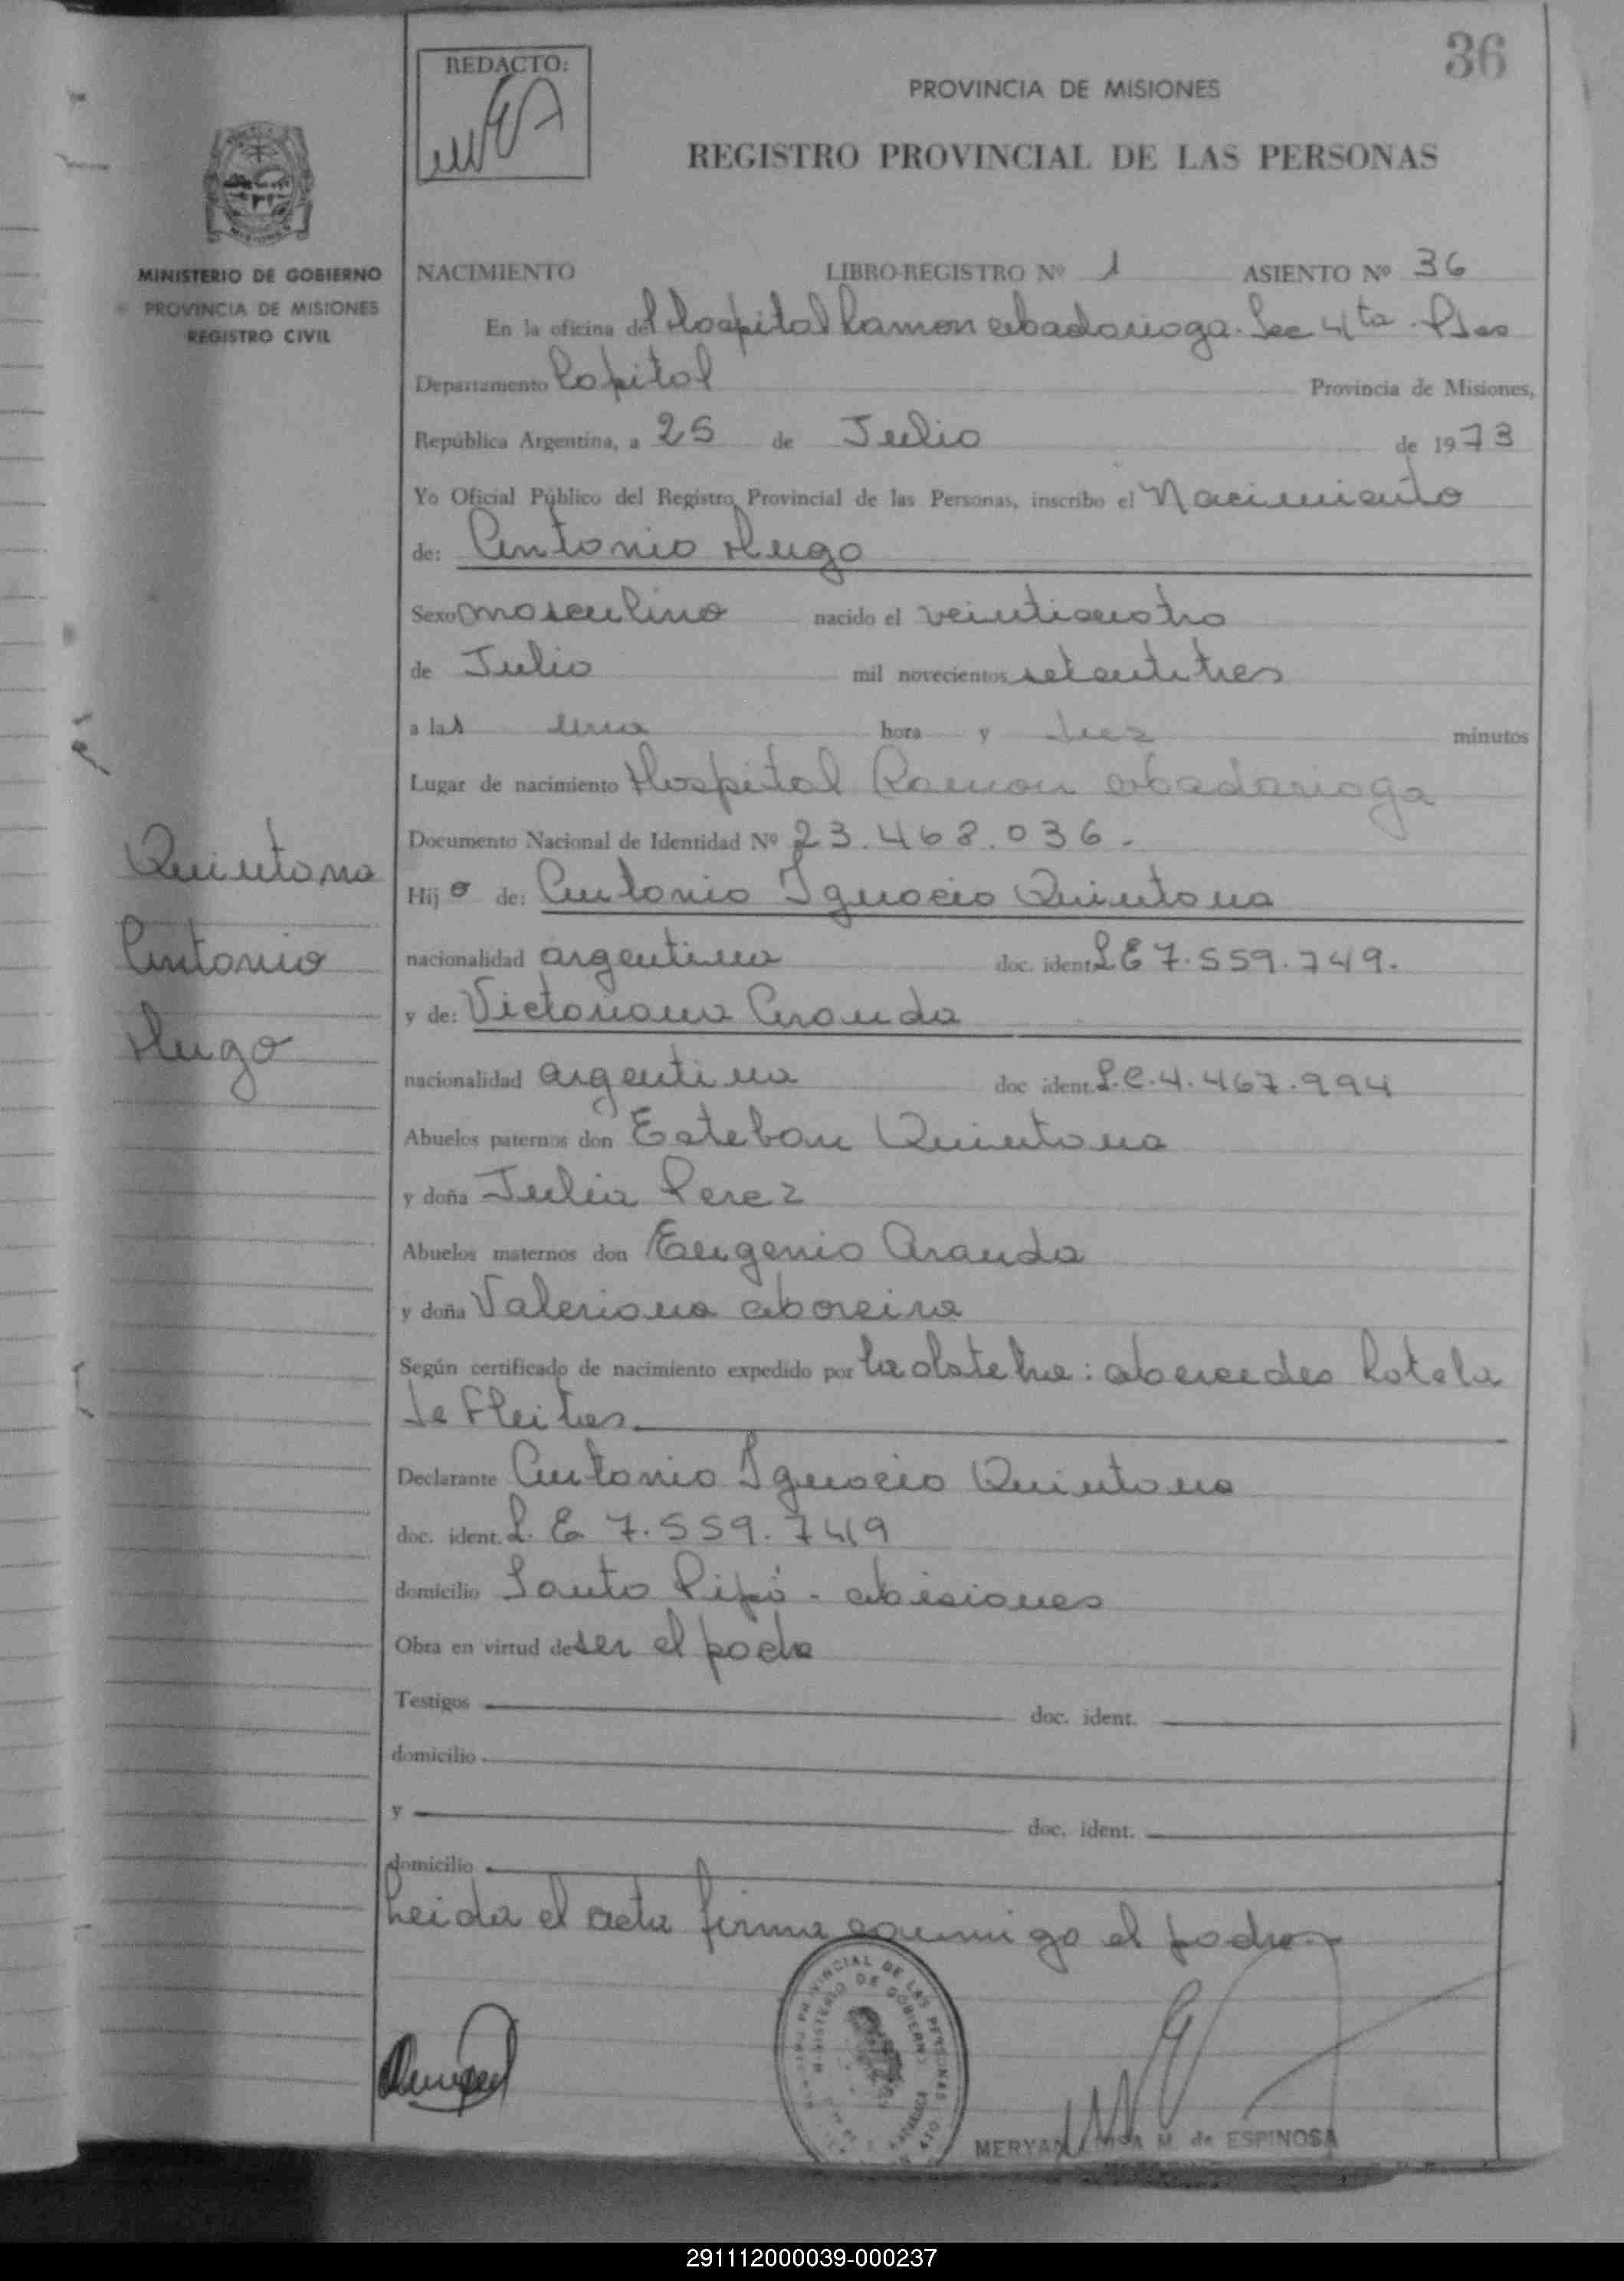 36
REDACTO:
PROVINCIA DE MISIONES
REGISTRO PROVINCIAL DE LAS PERSONAS
MINISTERIO DE GOBIERNO
PROVINCIA DE MISIONES
REGISTRO CIVIL
NACIMIENTO LIBRO-REGISTRO Nº 1 ASIENTO Nº 36
En la oficina del Hospital Ramon Madariaga. Sec 4ta. Pdas
Departamento Capital Provincia de Misiones,
República Argentina, a 25 de Julio de 1973
Yo Oficial Público del Registro Provincial de las Personas, inscribo el Nacimiento
de: Antonio Hugo
Sexo masculino nacido el veinticuatro
de Julio mil novecientos setentitres
a las una hora y diez minutos
Lugar de nacimiento Hospital Ramon Madariaga
Documento Nacional de Identidad Nº 23.468.036.
Quintana
Antonio
Hugo
Hijo de: Antonio Ignacio Quintana
nacionalidad argentina doc. ident. L E 7.559.749.
y de: Victoriana Aranda
nacionalidad argentina doc ident. L.C.4.467.994
Abuelos paternos don Esteban Quintana
y doña Julia Perez
Abuelos maternos don Eugenio Aranda
y doña Valeriana Moreira
Según certificado de nacimiento expedido por la obstetra: Mercedes Rotela
de Fleitas.
Declarante Antonio Ignacio Quintana
doc. ident. L. E 7.559.749
domicilio Santo Pipó - Misiones
Obra en virtud de ser el padre
Testigos doc. ident.
domicilio
y doc. ident.
domicilio
Leida el acta firma conmigo el padre
PROVINCIAL DE LAS PERSONAS
MINISTERIO DE GOBIERNO
MERYAN M. de ESPINOSA
291112000039-000237